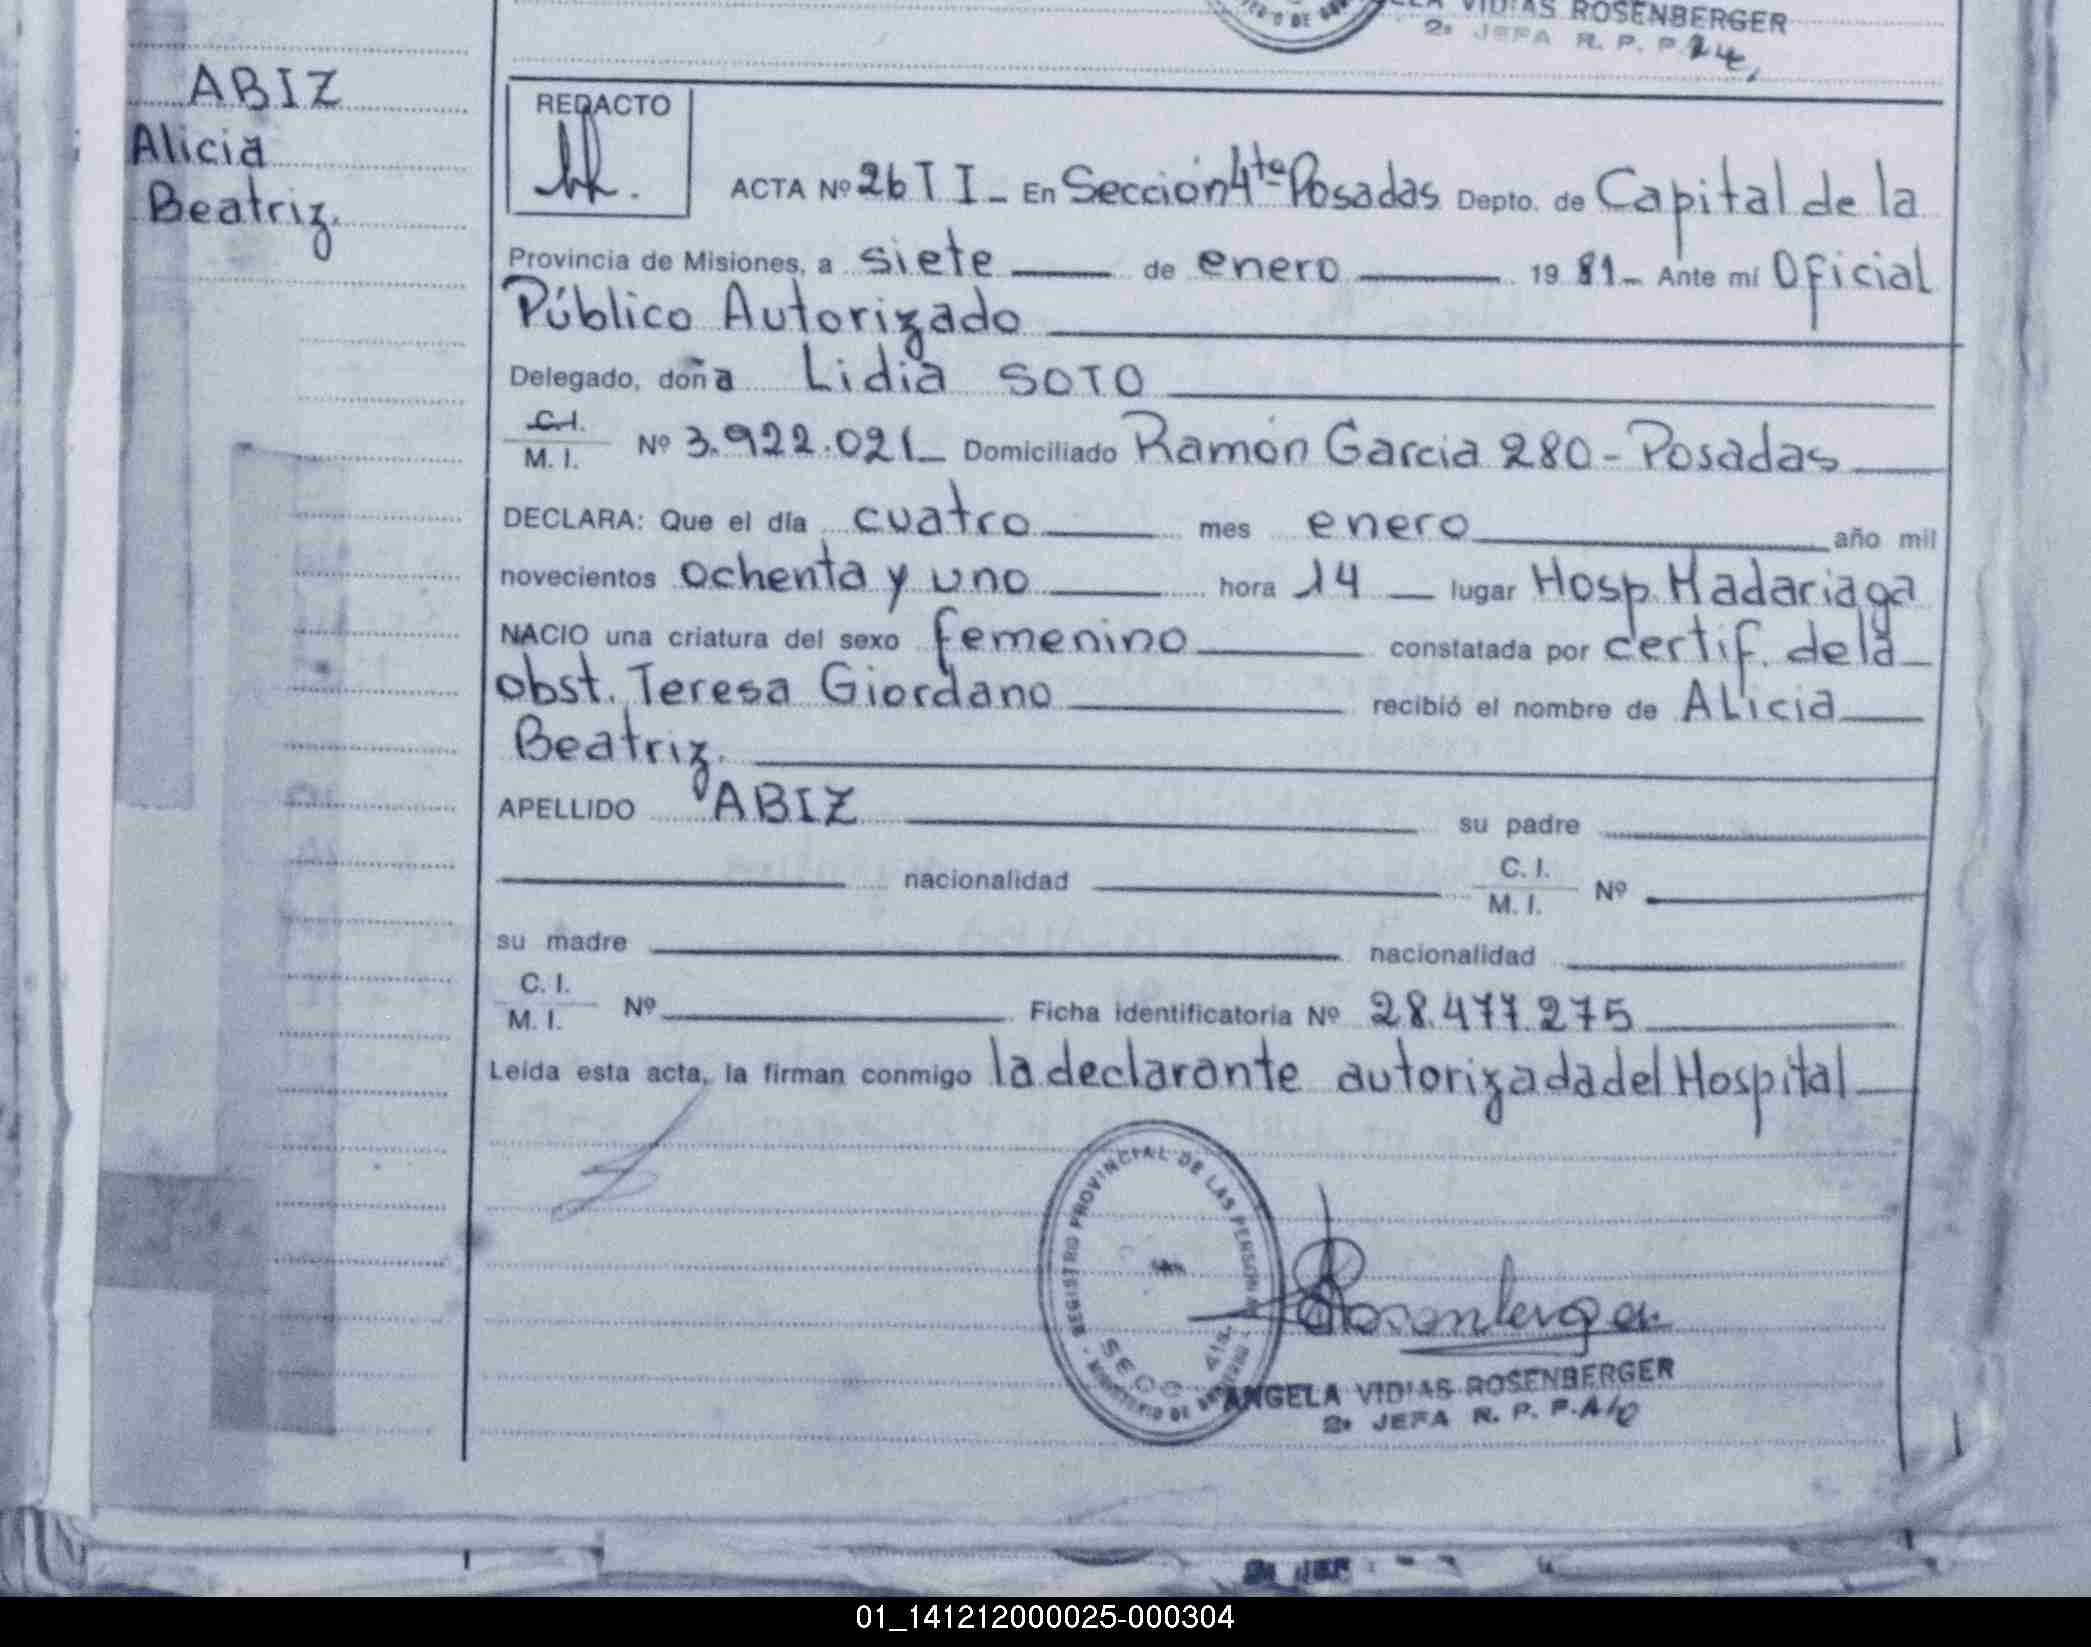 VIDIAS ROSENBERGER
2º JEFA R. P. P.
ABIZ
Alicia
Beatriz.
REDACTO
ACTA Nº 26 T I - En Sección 4ta Posadas Depto. de Capital de la
Provincia de Misiones, a siete de enero 1981- Ante mí Oficial
Público Autorizado
Delegado, doña Lidia SOTO
C.I. / M. I. Nº 3.922.021- Domiciliado Ramón Garcia 280 - Posadas
DECLARA: Que el día cuatro mes enero año mil
novecientos ochenta y uno hora 14 lugar Hosp. Madariaga
NACIO una criatura del sexo femenino constatada por certif. de la
obst. Teresa Giordano recibió el nombre de Alicia
Beatriz.
APELLIDO ABIZ su padre
nacionalidad C. I. / M. I. Nº
su madre nacionalidad
C. I. / M. I. Nº Ficha identificatoria Nº 28.477.275
Leída esta acta, la firman conmigo la declarante autorizada del Hospital
REGISTRO PROVINCIAL DE LAS PERSONAS
SECC. 4ta.
MINISTERIO DE GOBIERNO
Rosenberger
ANGELA VIDIAS ROSENBERGER
2º JEFA R. P. P. A/C
01_141212000025-000304